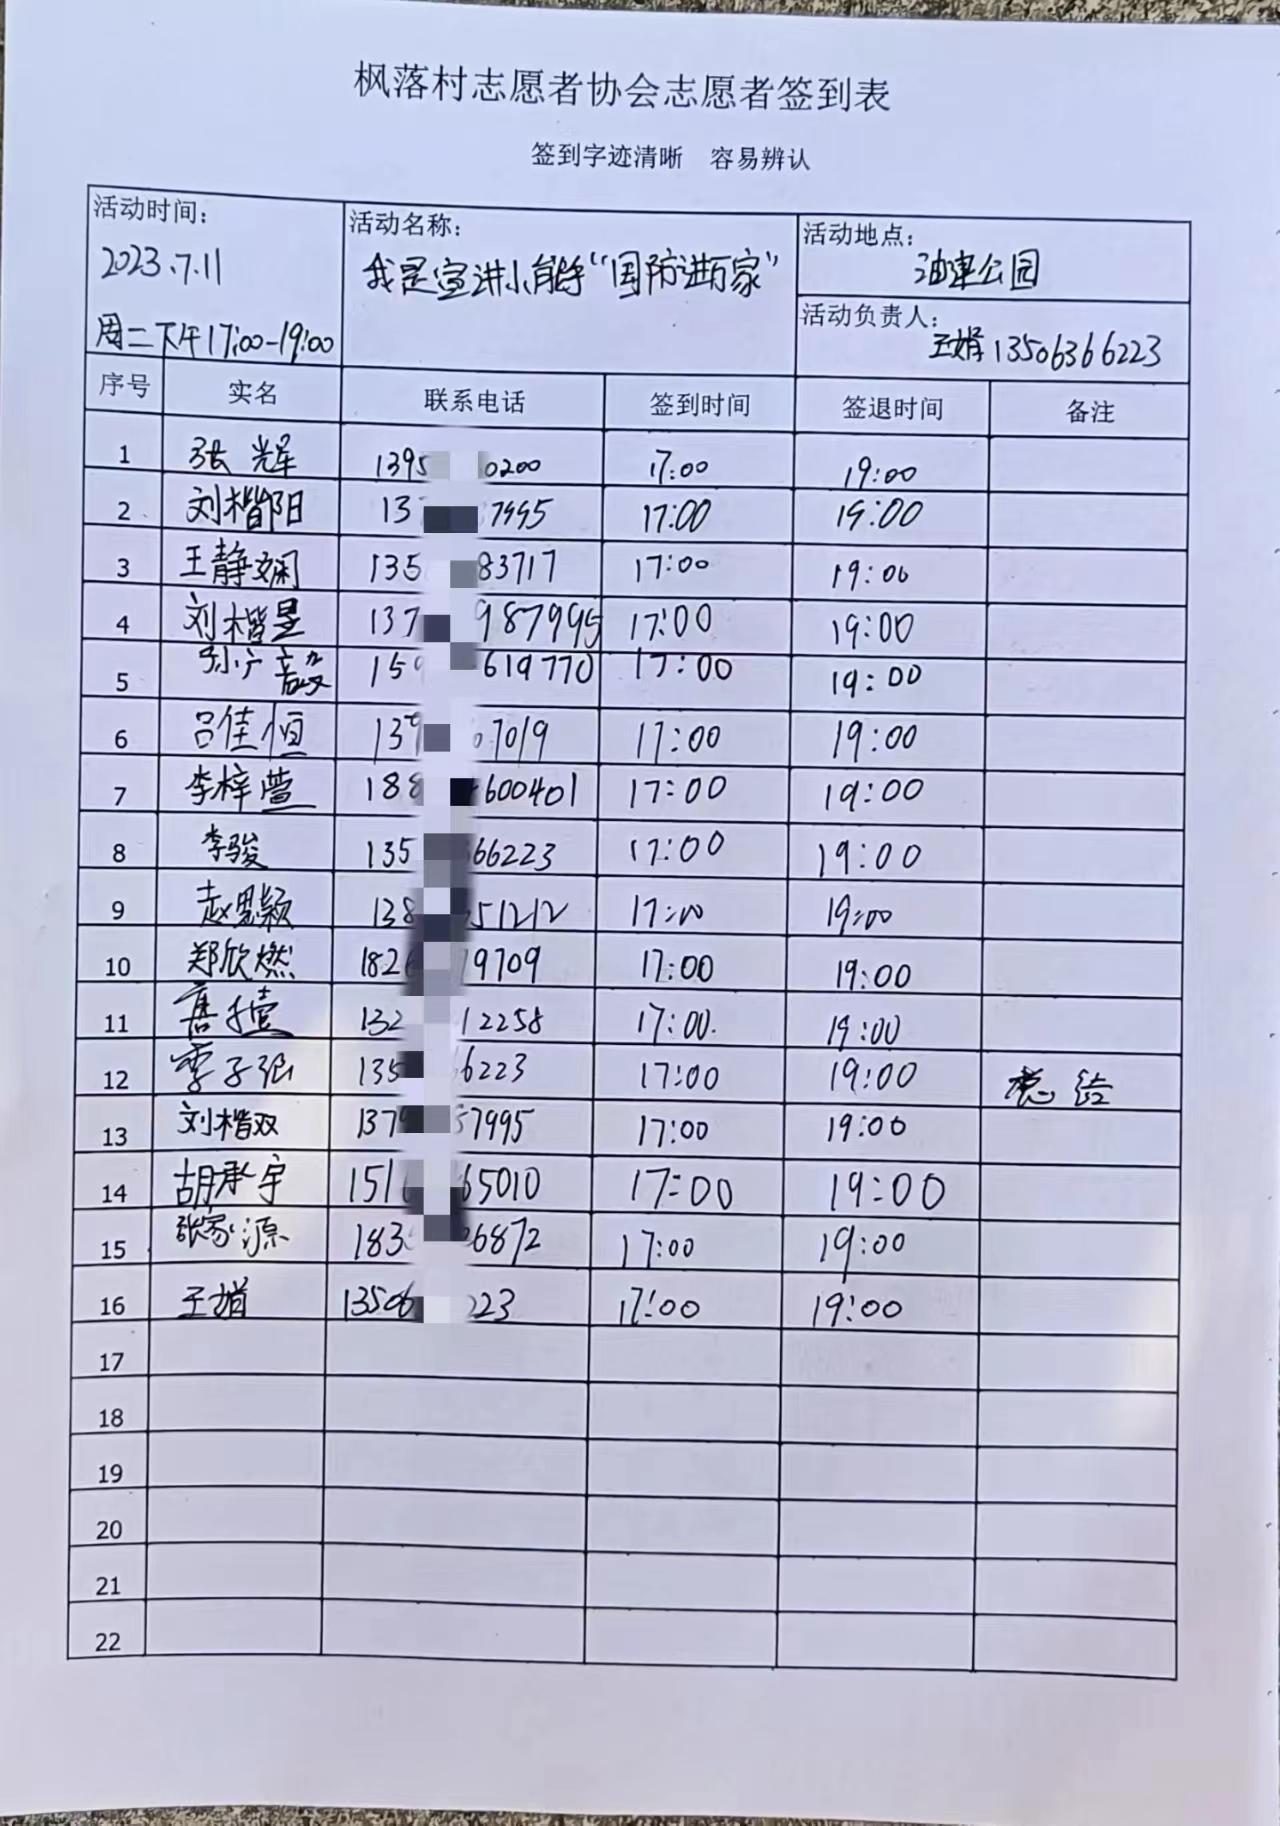 枫落村志愿者协会志愿者签到表
签到字迹清晰 容易辨认
活动时间：
2023.7.11
周二下午17:00-19:00
活动名称：
我是宣讲小能手“国防进万家”
活动地点：
油津公园
活动负责人：
王娟 13506366223
序号 实名 联系电话 签到时间 签退时间 备注
1 张辉 1395 0200 17:00 19:00
2 刘楷阳 13 7995 17:00 19:00
3 王静娴 135 83717 17:00 19:00
4 刘楷星 137 987995 17:00 19:00
5 孙广毅 159 619770 17:00 19:00
6 吕佳恒 139 7019 17:00 19:00
7 李梓萱 188 600401 17:00 19:00
8 李骏 135 66223 17:00 19:00
9 赵思颖 138 51212 17:00 19:00
10 郑欣燃 182 19709 17:00 19:00
11 132 12258 17:00. 19:00
12 李子强 135 6223 17:00 19:00 总结
13 刘楷双 137 7995 17:00 19:00
14 胡承宇 151 65010 17:00 19:00
15 张家源 183 6872 17:00 19:00
16 王娟 1350 223 17:00 19:00
17
18
19
20
21
22